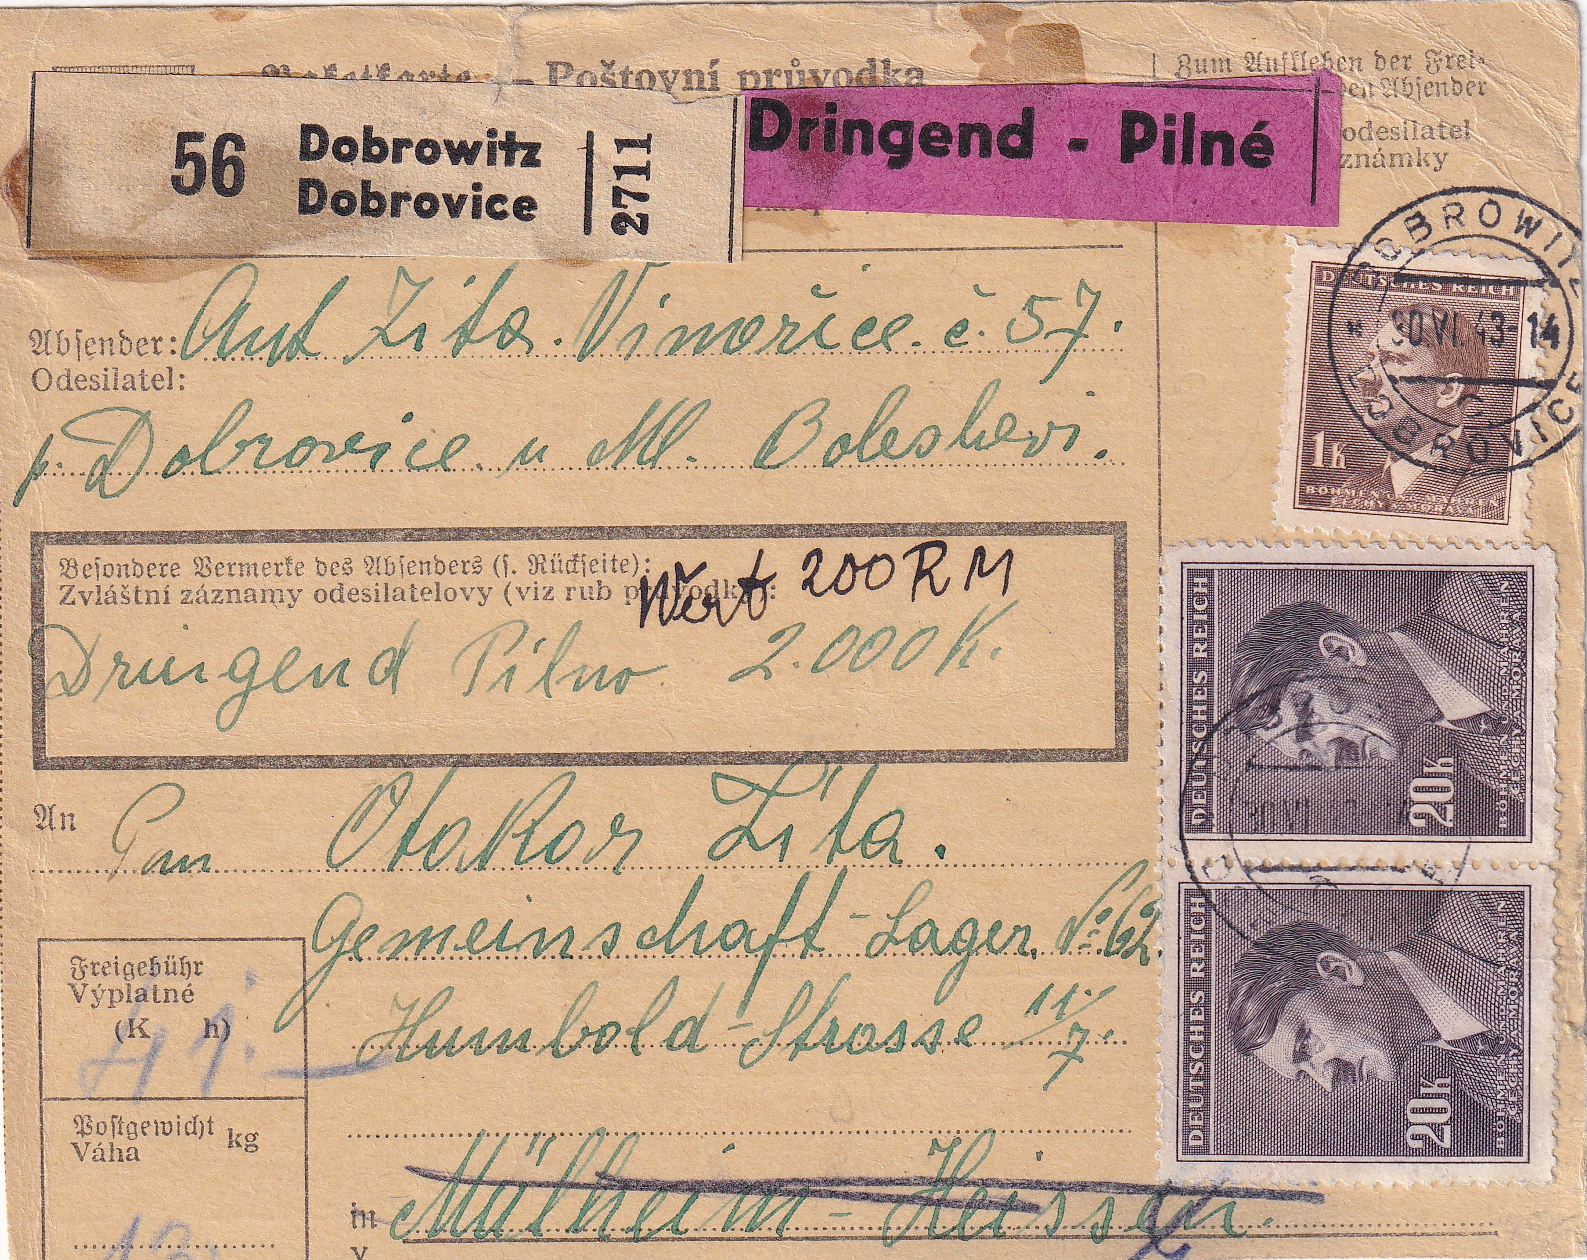 Paketkarte — Poštovní průvodka
Zum Aufkleben der Frei-
den Absender
odesilatel
známky
56 Dobrowitz
Dobrovice
2711
Dringend - Pilné
DOBROWITZ
30 VI. 43-14
C
DOBROVICE
Absender: Ant Zita. Vinořice. č. 57.
Odesilatel:
p. Dobrovice. u Ml. Boleslavi.
DEUTSCHES REICH
1K
BÖHMEN UND MÄHREN
ČECHY A MORAVA
Besondere Vermerke des Absenders (s. Rückseite):
Zvláštní záznamy odesilatelovy (viz rub průvodky):
Wert 200 RM
Dringend Pilno 2.000 K.
DEUTSCHES REICH
20K
BÖHMEN UND MÄHREN
ČECHY A MORAVA
An Pan Otakar Zita.
Gemeinschaft-Lager. No 62.
Humbold-Strasse 11/7.
DEUTSCHES REICH
20K
BÖHMEN UND MÄHREN
ČECHY A MORAVA
Freigebühr
Výplatné
(K h)
41.-
Postgewicht
Váha kg
in Mülheim-Heissen.
V